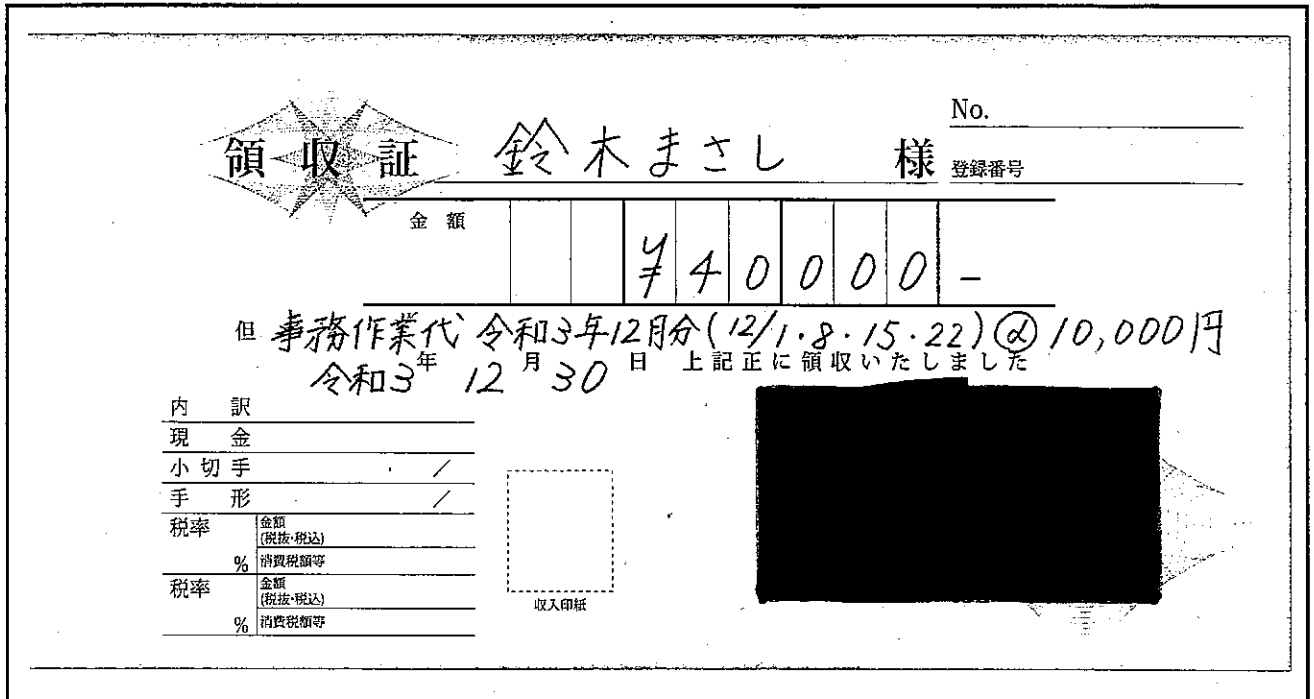 No.
領収証 鈴木まさし 様
登録番号
金額 ¥40000-
但 事務作業代 令和3年12月分(12/1・8・15・22)@10,000円
令和3年12月30日 上記正に領収いたしました
内訳
現金
小切手 /
手形 /
税率 % 金額(税抜・税込)
消費税額等
税率 % 金額(税抜・税込)
消費税額等
収入印紙